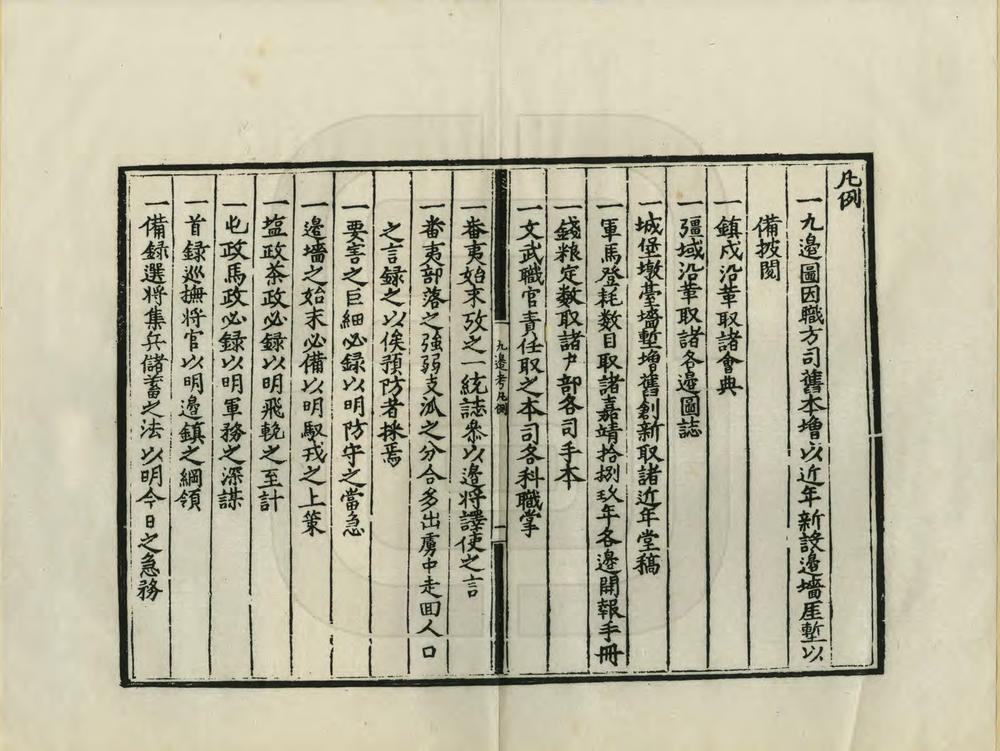 凡例
一九邉圖因職方司舊本増以近年新設邉墻厓塹以
備披閲
一鎮戍沿革取諸會典
一彊域沿革取諸各邉圖誌
一城堡墩臺墻塹増舊創新取諸近年堂稿
一軍馬登耗数目取諸嘉靖拾捌玖年各邉開報手冊
一錢粮定数取諸户部各司手本
一文武職官責任取之本司各科職掌
九邉考凡例
一
一畨夷始末攷之一統誌叅以邉将譯使之言
一畨夷部落之強弱支派之分合多出虜中走回人口
之言録之以俟預防者採焉
一要害之巨細必録以明防守之當急
一邉墻之始末必備以明馭戎之上策
一塩政茶政必録以明飛輓之至計
一屯政馬政必録以明軍務之深謀
一首録廵撫将官以明邉鎮之綱領
一備録選将集兵儲蓄之法以明今日之急務